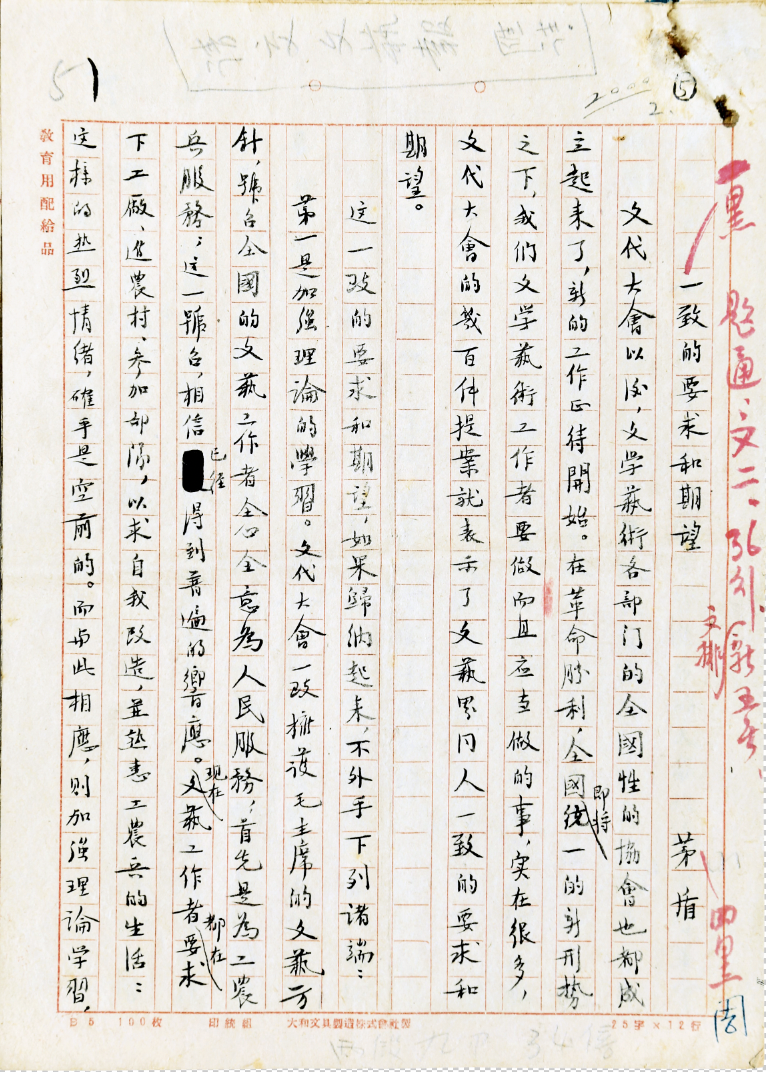 5 1
2000
2
⑤
一致的要求和期望
茅盾
文代大會以後，文学藝術各部门的全國性的協會也都成
立起来了，新的工作正待開始。在革命勝利，全國即将统一的新形势
之下，我们文学藝術工作者要做而且应当做的事，实在很多，
文代大會的幾百件提案就表示了文藝界同人一致的要求和
期望。
这一致的要求和期望，如果歸纳起来，不外乎下列诸端：
第一是加强理論的學習。文代大會一致擁護毛主席的文藝方
针，號召全國的文藝工作者全心全意為人民服務，首先是為工農
兵服務；这一號召，相信已经得到普遍的響应。现在文藝工作者都在要求
下工廠、進農村、参加部隊，以求自我改造，並熟悉工農兵的生活：
这样的热烈情绪，確乎是空前的。而与此相應，则加强理論学習，
教育用配給品
B5 100枚 印統組 大和文具製造株式會社製 25字×12行